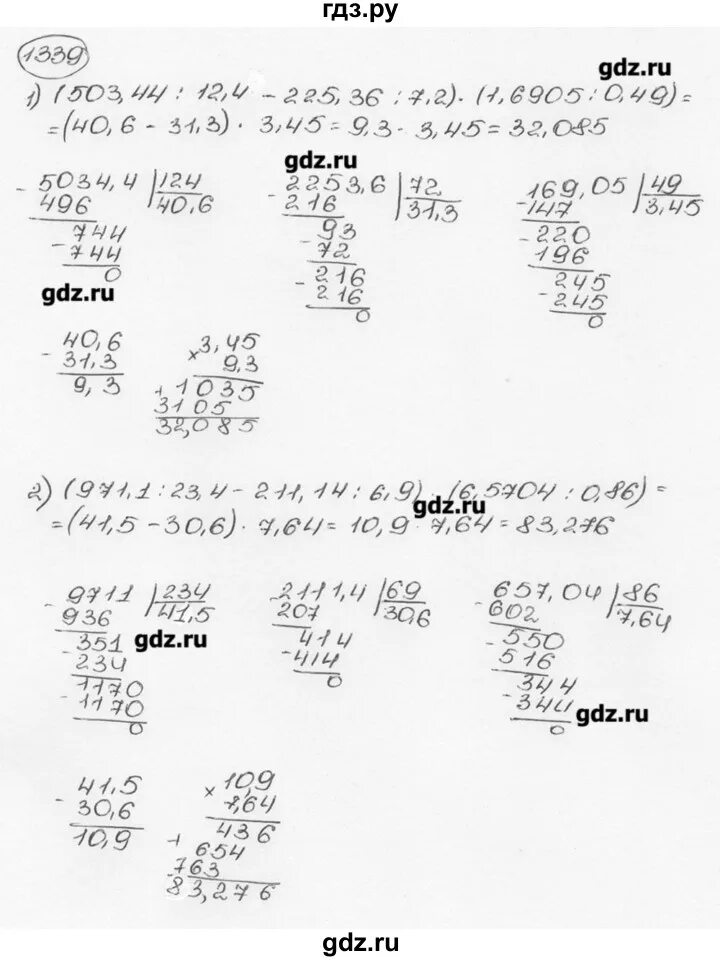 гдз.ру
1339
gdz.ru
1) (503,44 : 12,4 - 225,36 : 7,2) · (1,6905 : 0,49) =
= (40,6 - 31,3) · 3,45 = 9,3 · 3,45 = 32,085
gdz.ru
- 5034,4 | 124
496 40,6
- 744
744
0
gdz.ru
- 2253,6 | 72
216 31,3
- 93
72
- 216
216
0
- 169,05 | 49
147 3,45
- 220
196
- 245
245
0
- 40,6
31,3
9,3
× 3,45
9,3
+ 1035
3105
32,085
2) (971,1 : 23,4 - 211,14 : 6,9) · (6,5704 : 0,86) =
gdz.ru
= (41,5 - 30,6) · 7,64 = 10,9 · 7,64 = 83,276
- 9711 | 234
936 41,5
- 351
234
- 1170
1170
0
gdz.ru
- 2111,4 | 69
207 30,6
- 414
414
0
- 657,04 | 86
602 7,64
- 550
516
- 344
344
0
gdz.ru
- 41,5
30,6
10,9
× 10,9
7,64
436
+ 654
763
83,276
gdz.ru